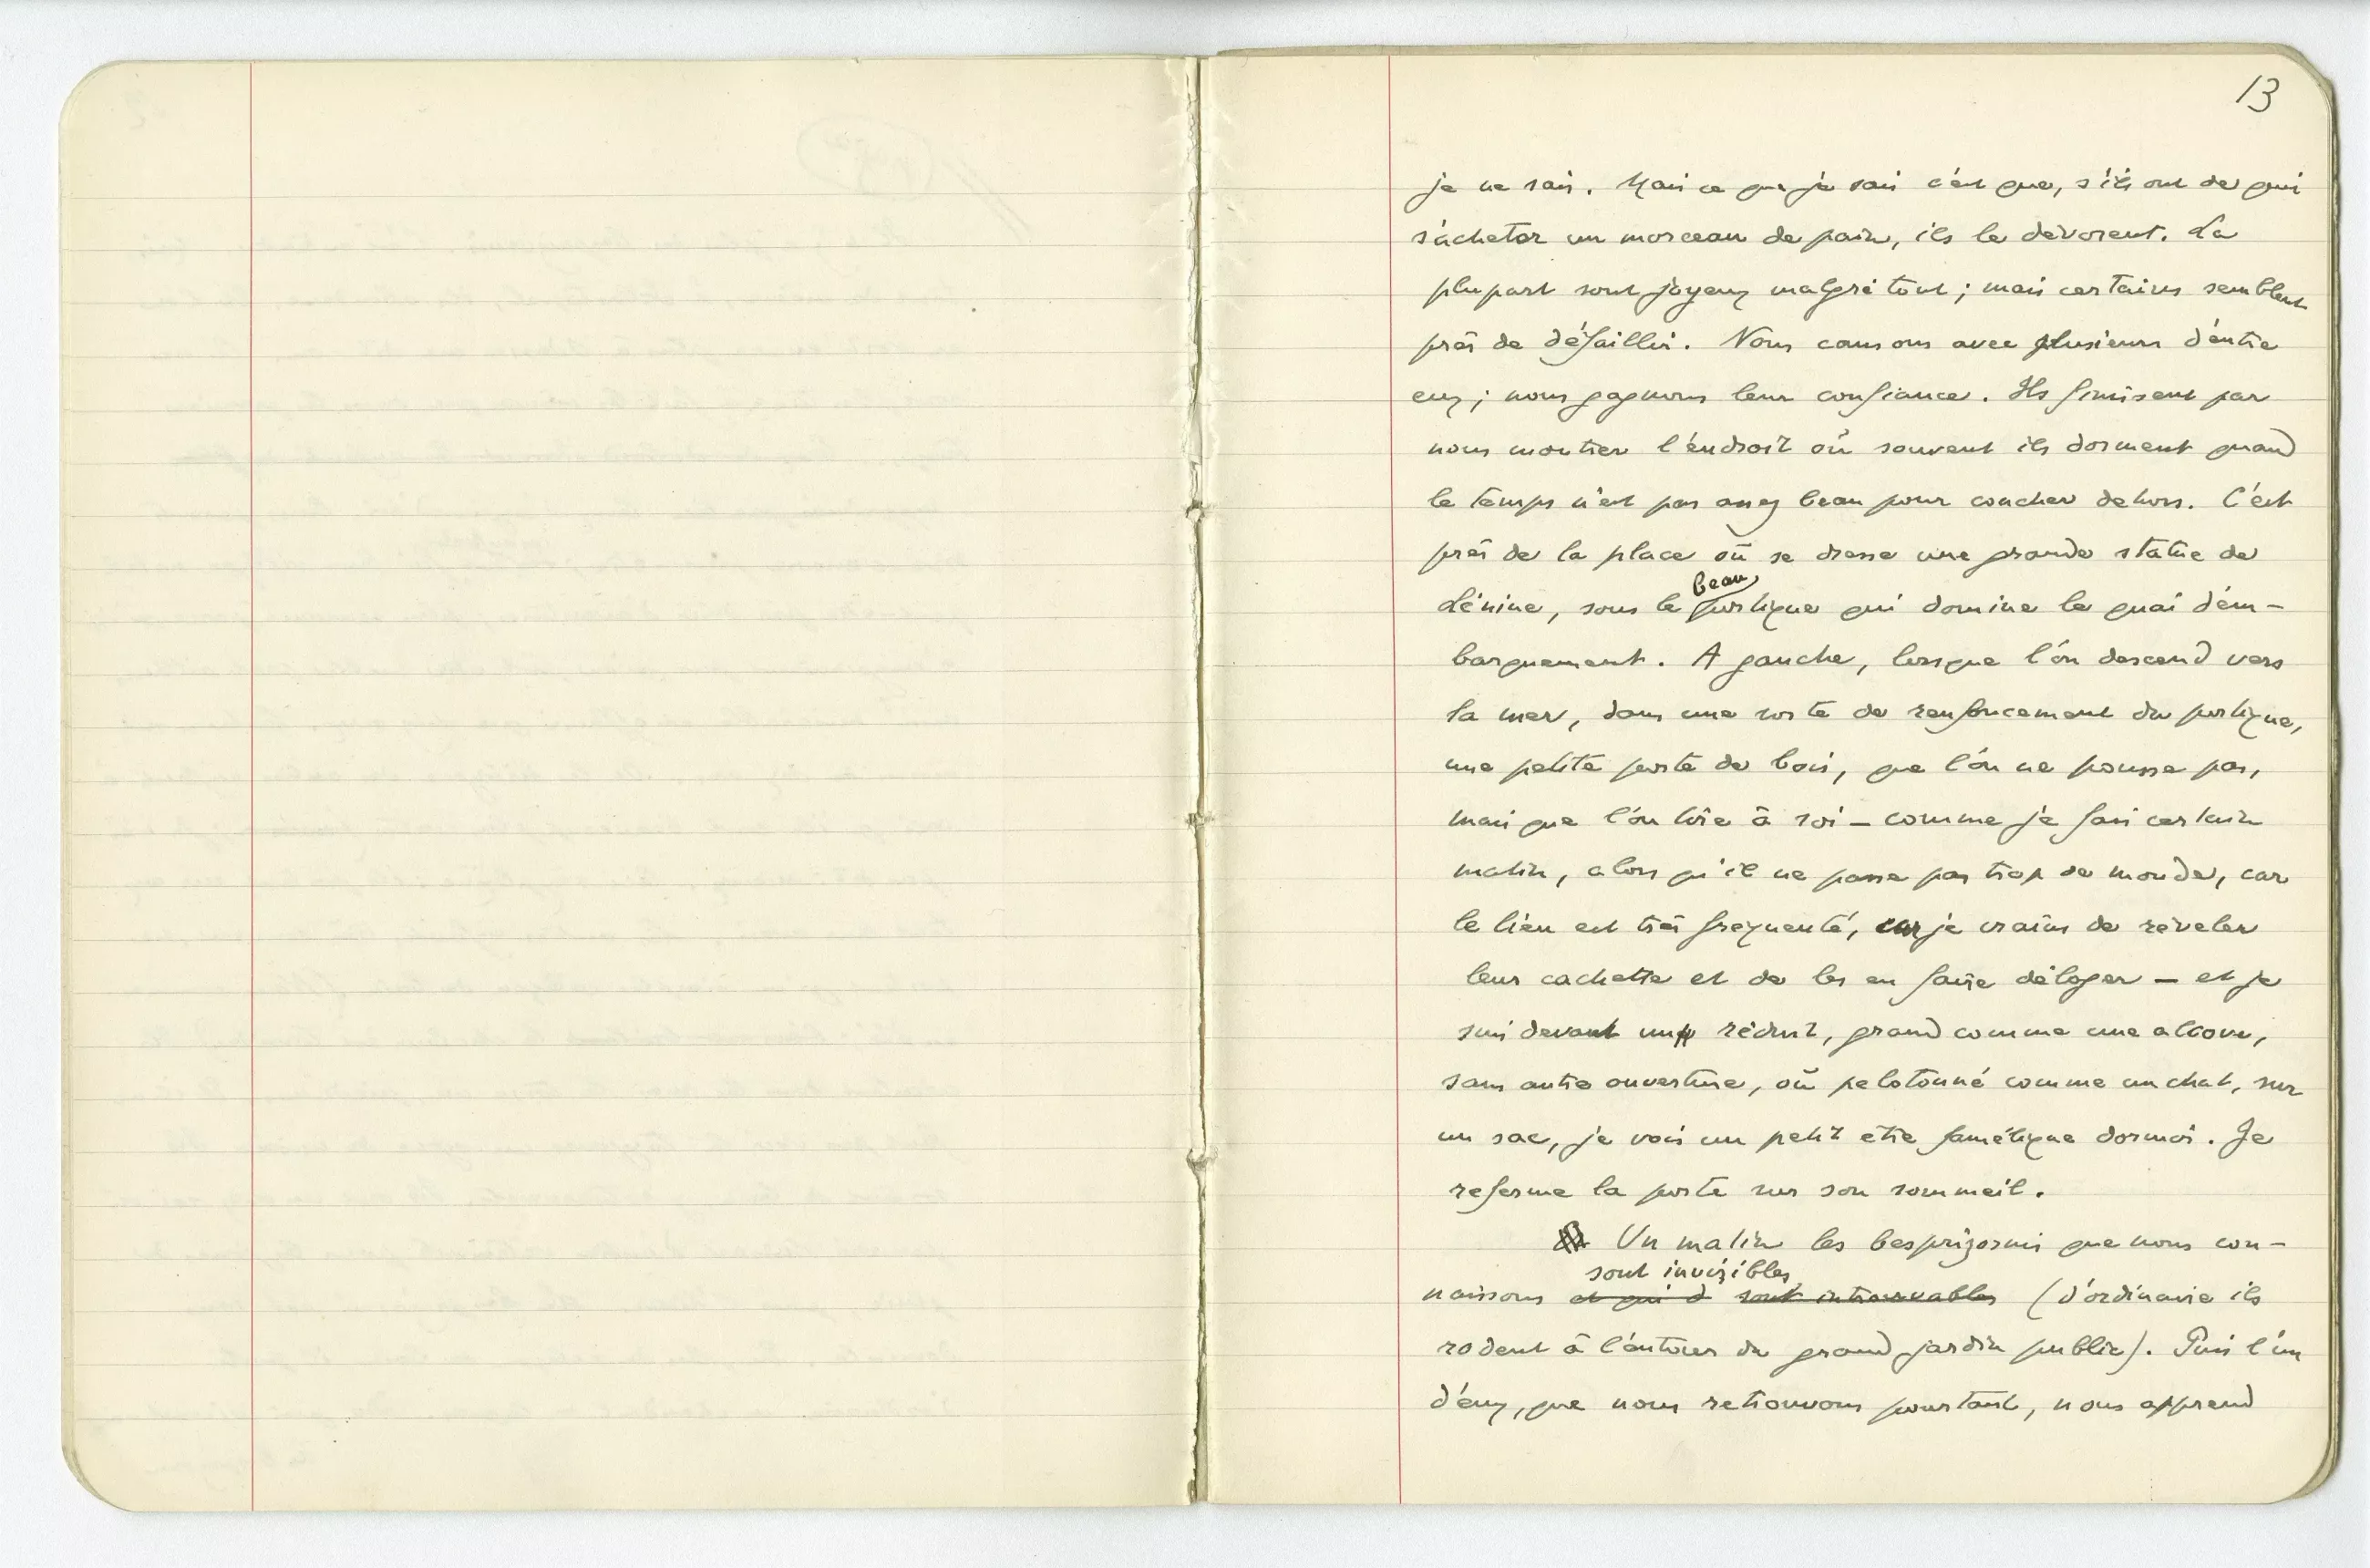 13
je ne sais. Mais ce que je sais c'est que, s'ils ont de quoi
s'acheter un morceau de pain, ils le dévorent. La
plupart sont joyeux malgré tout ; mais certains semblent
près de défaillir. Nous causons avec plusieurs d'entre
eux ; nous gagnons leur confiance. Ils finissent par
nous montrer l'endroit où souvent ils dorment quand
le temps n'est pas assez beau pour coucher dehors. C'est
près de la place où se dresse une grande statue de
beau
Lénine, sous le portique qui domine le quai d'em-
barquement. A gauche, lorsque l'on descend vers
la mer, dans une sorte de renfoncement du portique,
une petite porte de bois, que l'on ne pousse pas,
mais que l'on tire à soi — comme je fais certain
matin, alors qu'il ne passe pas trop de monde, car
le lieu est très fréquenté, car je crains de révéler
leur cachette et de les en faire déloger — et je
suis devant un réduit, grand comme une alcove,
sans autre ouverture, où pelotonné comme un chat, sur
un sac, je vois un petit être famélique dormir. Je
referme la porte sur son sommeil.
Un matin les besprizornis que nous con-
sont invisibles
naissons et qui d sont introuvables (d'ordinaire ils
rodent à l'entour du grand jardin public). Puis l'un
d'eux, que nous retrouvons pourtant, nous apprend